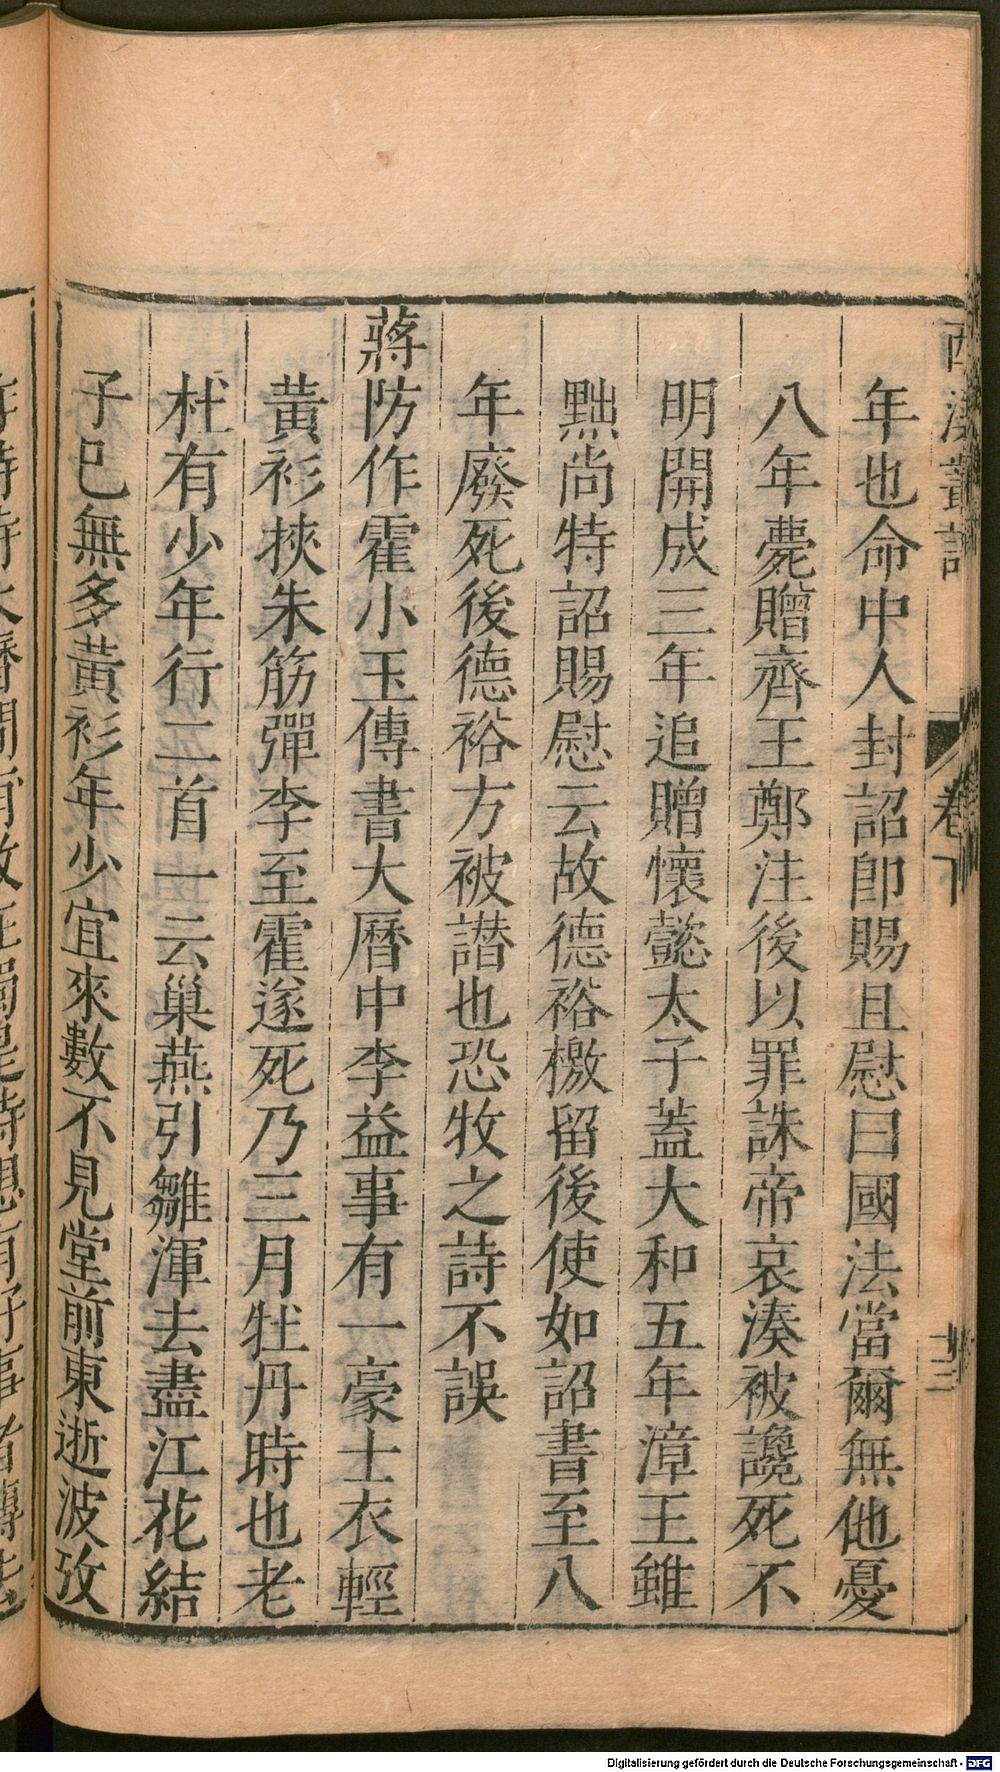 西溪叢語
卷下
年也命中人封詔卽賜且慰曰國法當爾無他憂
八年薨贈齊王鄭注後以罪誅帝哀湊被讒死不
明開成三年追贈懷懿太子蓋大和五年漳王雖
黜尚特詔賜慰云故德裕檄留後使如詔書至八
年廢死後德裕方被譖也恐牧之詩不誤
蔣防作霍小玉傳書大曆中李益事有一豪士衣輕
黃衫挾朱筋彈李至霍遂死乃三月牡丹時也老
杜有少年行二首一云巢燕引雛渾去盡江花結
子巳無多黃衫年少宜來數不見堂前東逝波攷
Digitalisierung gefördert durch die Deutsche Forschungsgemeinschaft - DFG